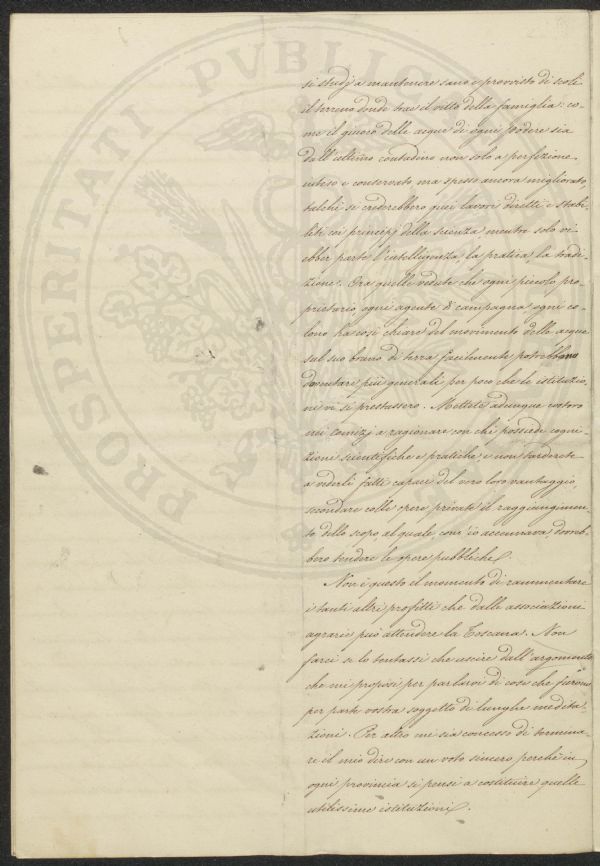 PROSPERITATI PUBLICAE
si studj a mantenere sano e provvisto di scoli
il terreno donde trae il vitto della famiglia: co-
me il giuoco delle acque di ogni podere sia
dall'ultimo contadino non solo a perfezione
inteso e conservato ma spesso ancora migliorato,
talchè si crederebbero quei lavori diretti e stabi-
liti coi principj della scienza mentre solo vi
ebber parte l'intelligenza, la pratica, la tradi-
zione. Ora quelle vedute che ogni piccolo pro-
prietario, ogni agente di campagna ogni co-
lono ha così chiare del movimento delle acque
sul suo brano di terra facilmente potrebbero
diventare più generali per poco che le istituzio-
ni vi si prestassero. Mettete adunque costoro
nei comizj a ragionare con chi possiede cogni-
zioni scientifiche e pratiche e non tarderete
a vederli fatti capaci del vero loro vantaggio,
secondare colle opere private il raggiungimen-
to dello scopo, al quale com'io accennava, dovreb-
bero tendere le opere pubbliche.
Non è questo il momento di rammentare
i tanti altri profitti che dalle associazioni
agrarie può attendere la Toscana. Non
farei se lo tentassi che uscire dall'argomento
che mi proposi per parlarvi di cose che furono
per parte vostra soggetto di lunghe medita-
zioni. Per altro mi sia concesso di termina-
re il mio dire con un voto sincero perchè in
ogni provincia si pensi a costituire quelle
utilissime istituzioni.